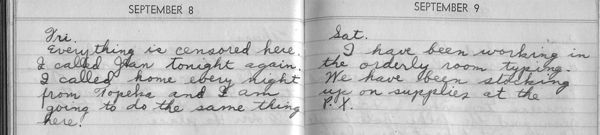 SEPTEMBER 8
Fri.
Everything is censored here.
I called Jean tonight again.
I called home every night
from Topeka and I am
going to do the same thing
here.
SEPTEMBER 9
Sat.
I have been working in
the orderly room typing.
We have been stocking
up on supplies at the
P.X.